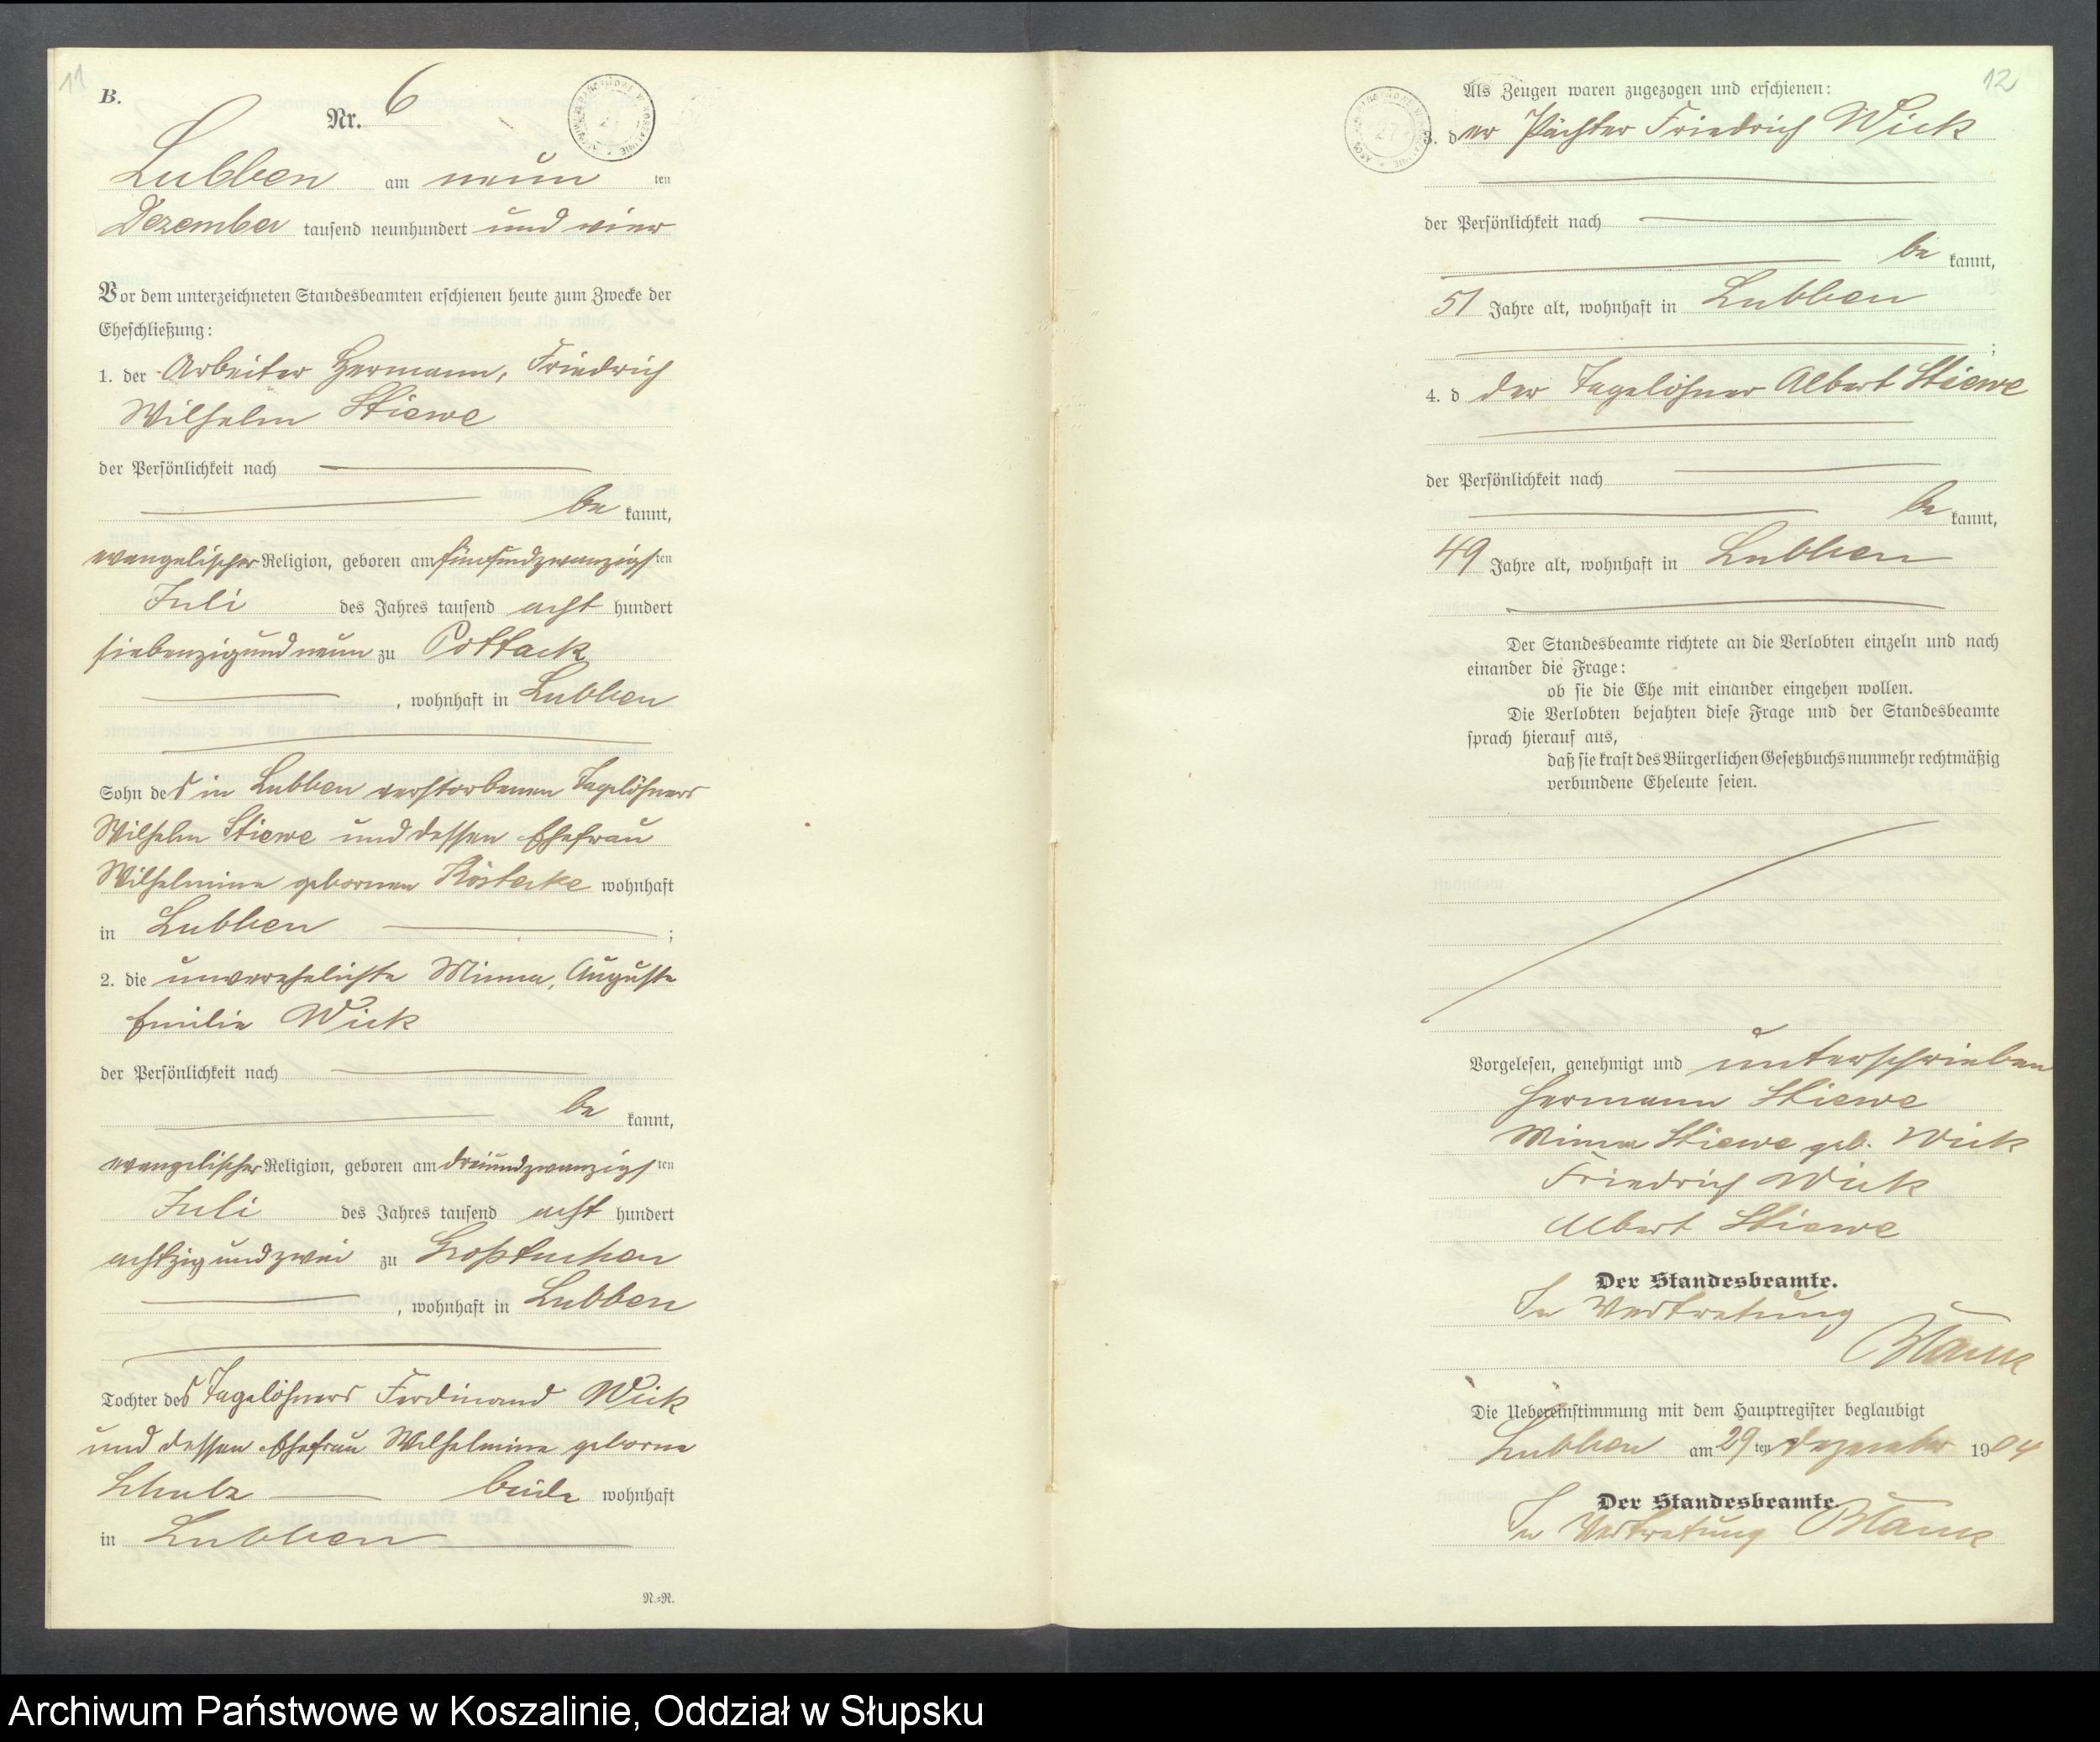 11
B.
Nr. 6
Lubben am neun ten
Dezember tausend neunhundert und vier
Vor dem unterzeichneten Standesbeamten erschienen heute zum Zwecke der
Eheschließung:
1. der Arbeiter Hermann, Friedrich
Wilhelm Stiewe
der Persönlichkeit nach
be kannt,
evangelischer Religion, geboren am fünfundzwanzigs ten
Juli des Jahres tausend acht hundert
siebenzigundneun zu Pottack
, wohnhaft in Lubben
Sohn des in Lubben verstorbenen Tagelöhners
Wilhelm Stiewe und dessen Ehefrau
Wilhelmine gebornen wohnhaft
in Lubben ;
2. die unverehelichte Minna, Auguste
Emilie Wick
der Persönlichkeit nach
be kannt,
evangelischer Religion, geboren am dreiundzwanzigs ten
Juli des Jahres tausend acht hundert
achtzig und zwei zu Großtuchen
, wohnhaft in Lubben
Tochter des Tagelöhners Ferdinand Wick
und dessen Ehefrau Wilhelmine geborne
Schulz beide wohnhaft
in Lubben
N.=N.
12
Als Zeugen waren zugezogen und erschienen:
3. der Pächter Friedrich Wick
der Persönlichkeit nach
be kannt,
51 Jahre alt, wohnhaft in Lubben
;
4. d der Tagelöhner Albert Stiewe
der Persönlichkeit nach
be kannt,
49 Jahre alt, wohnhaft in Lubben
Der Standesbeamte richtete an die Verlobten einzeln und nach
einander die Frage:
ob sie die Ehe mit einander eingehen wollen.
Die Verlobten bejahten diese Frage und der Standesbeamte
sprach hierauf aus,
daß sie kraft des Bürgerlichen Gesetzbuchs nunmehr rechtmäßig
verbundene Eheleute seien.
Vorgelesen, genehmigt und unterschrieben
Hermann Stiewe
Minna Stiewe geb. Wick
Friedrich Wick
Albert Stiewe
Der Standesbeamte.
In Vertretung
Die Uebereinstimmung mit dem Hauptregister beglaubigt
Lubben am 29 ten Dezember 1904
Der Standesbeamte.
In Vertretung
Archiwum Państwowe w Koszalinie, Oddział w Słupsku